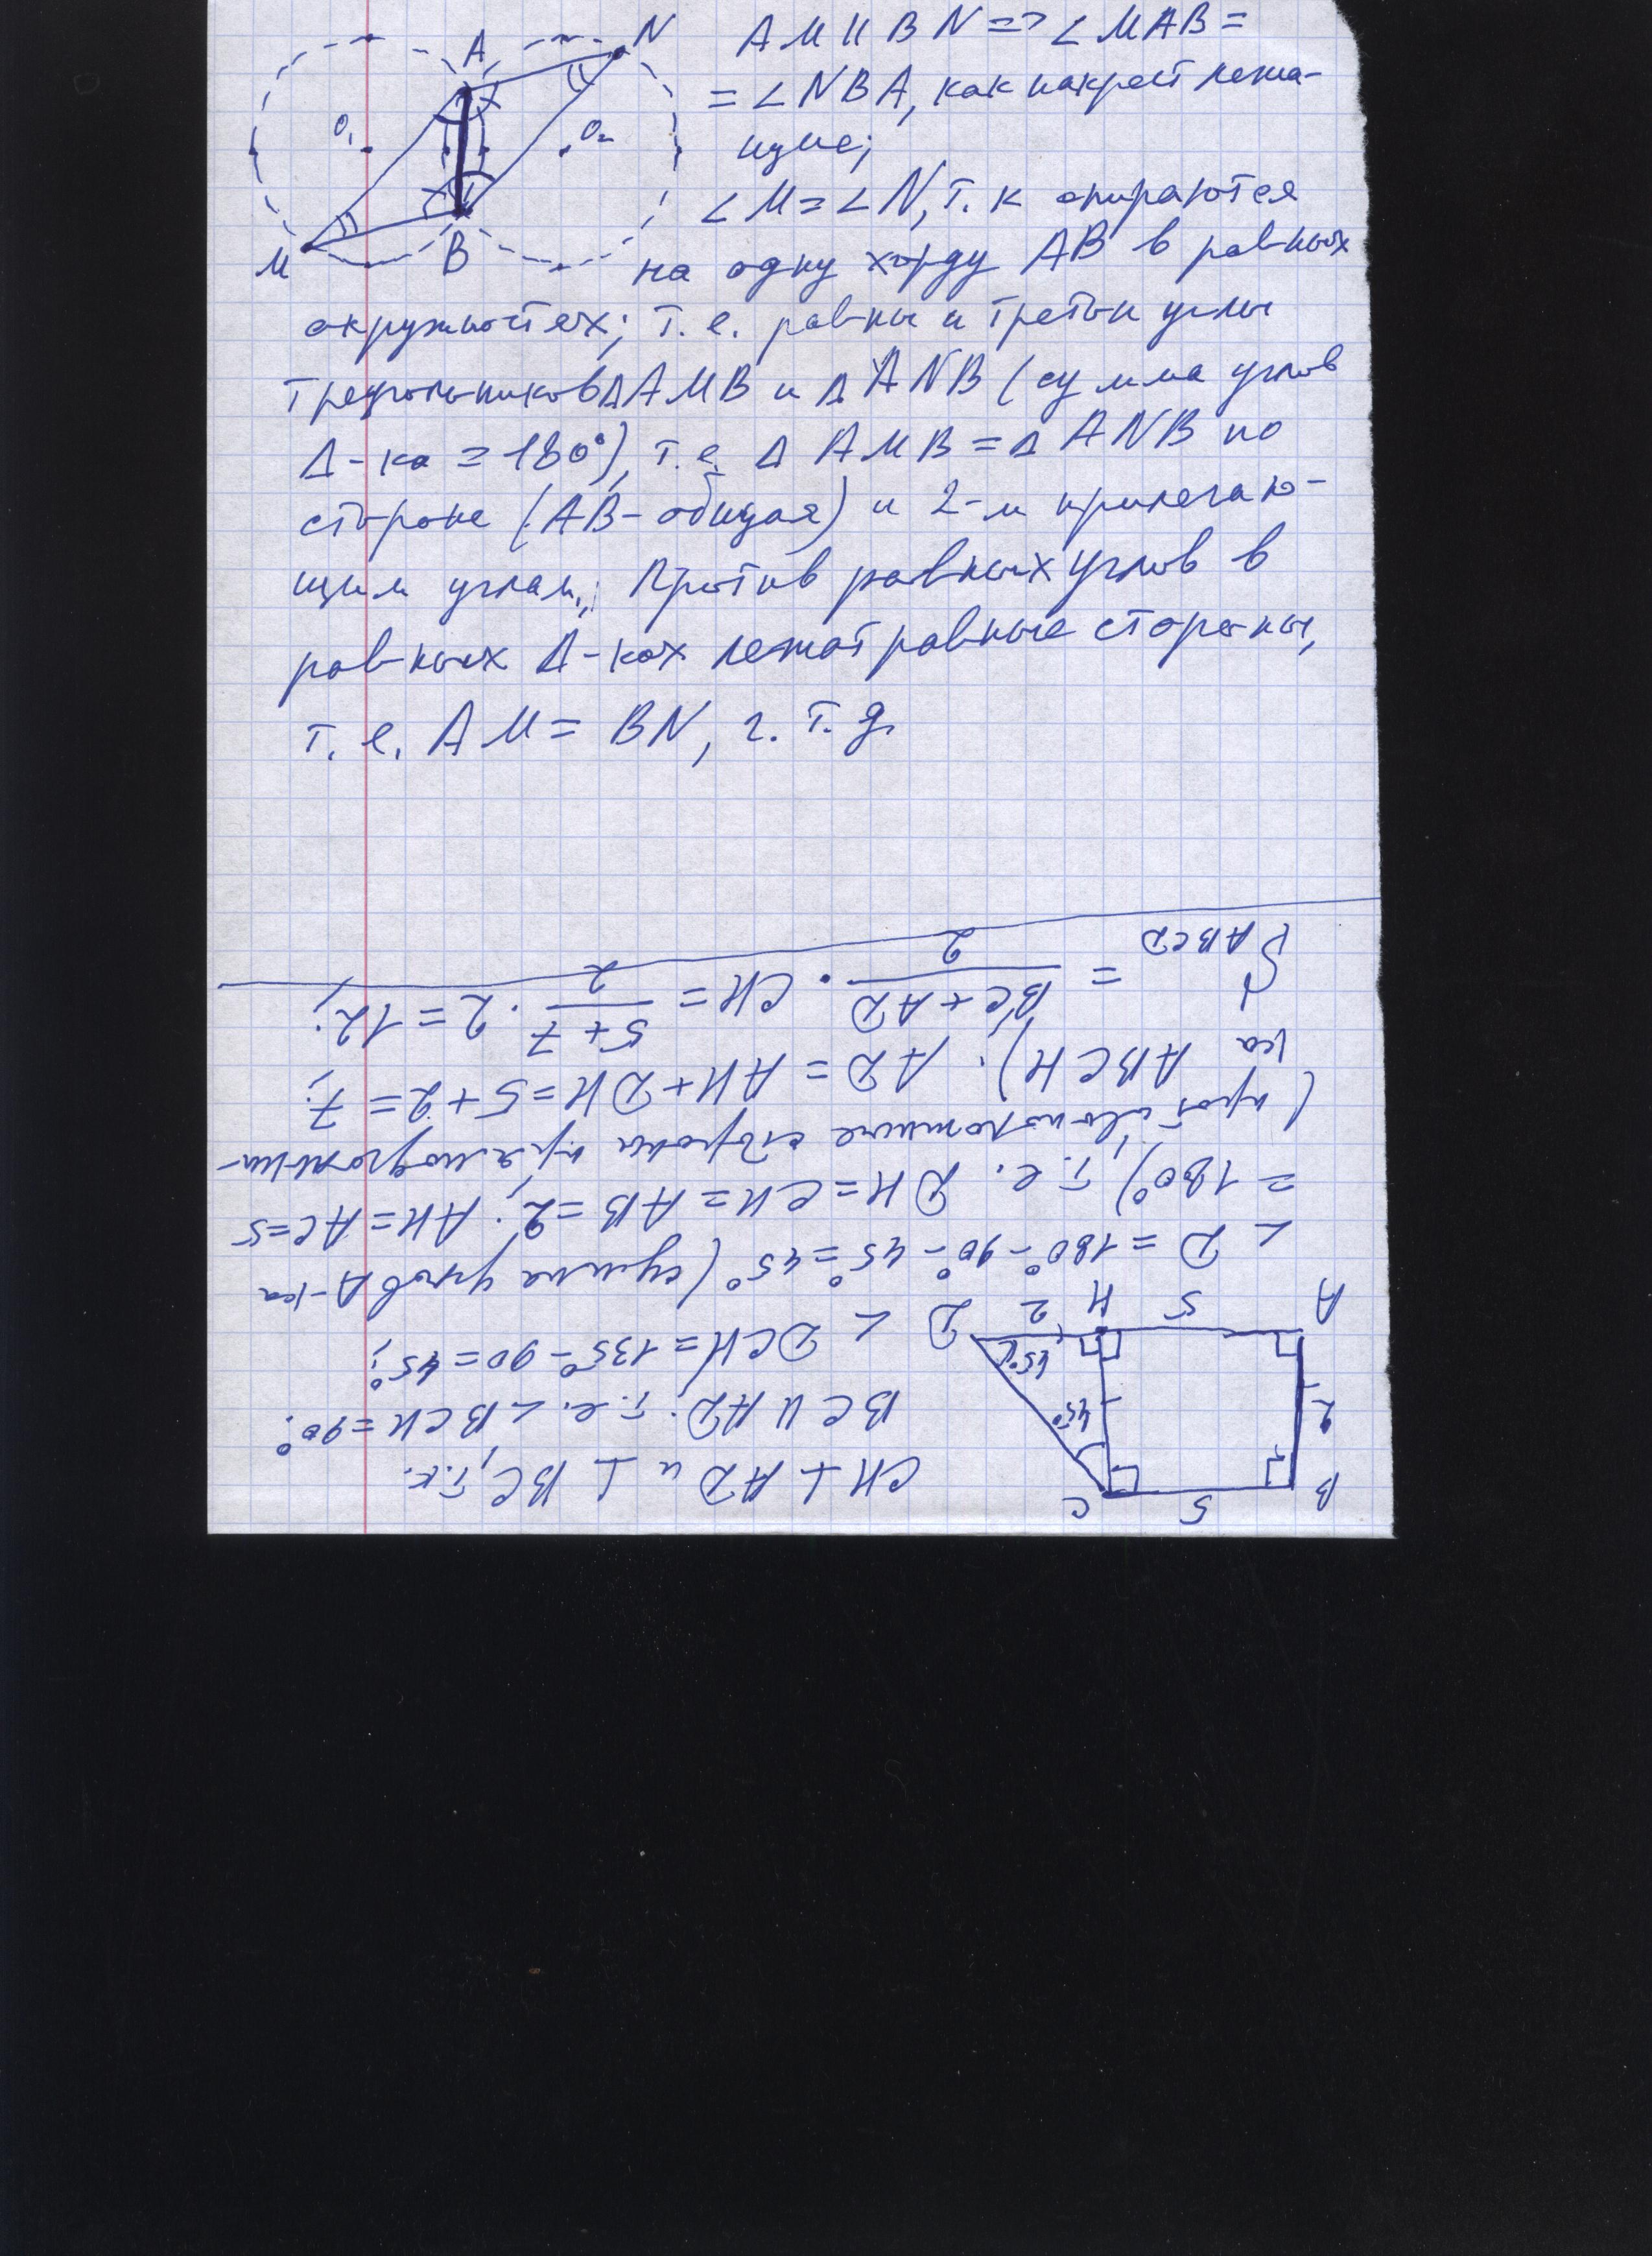 A N O₁ O₂ M B
AM || BN => ∠MAB =
= ∠NBA, как накрест лежа-
щие;
∠M = ∠N, т. к опираются
на одну хорду AB в равных
окружностях; т. е. равны и третьи углы
треугольников ΔAMB и Δ ANB (сумма углов
Δ-ка = 180°), т.е. Δ AMB = Δ ANB по
стороне (AB - общая) и 2-м прилегаю-
щим углам; Против равных углов в
равных Δ-ках лежат равные стороны,
т. е. AM = BN, ч. т. д.
B 5 C
2 45° 45°
A 5 H 2 D
CH ⊥ AD и ⊥ BC, т.к.
BC || AD. т. е. ∠BCH = 90°.
∠ DCH = 135° - 90 = 45°;
∠ D = 180° - 90° - 45° = 45° (сумма углов Δ-ка
= 180°) т. е. DH = CH = AB = 2; AH = AC = 5
(противоположные стороны прямоугольни-
ка ABCH). AD = AH + DH = 5 + 2 = 7;
S ABCD = BC + AD / 2 · CH = 5 + 7 / 2 · 2 = 12;